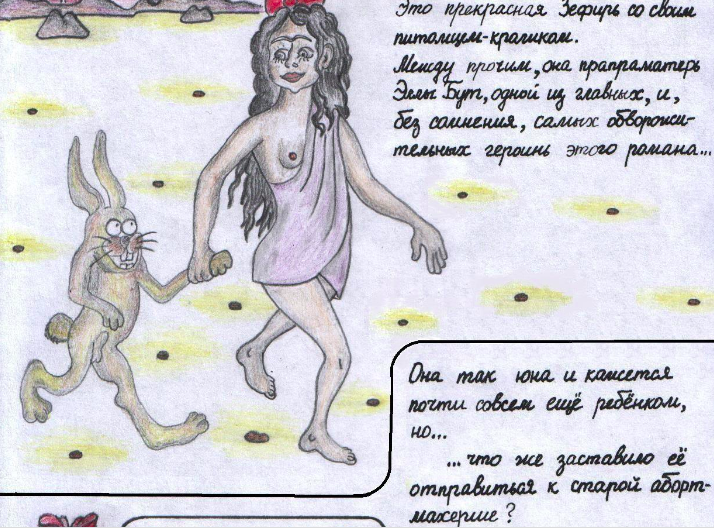 Это прекрасная Зефирь со своим
питомцем-кроликом.
Между прочим, она прапраматерь
Эллы Бут, одной из главных, и,
без сомнения, самых обворожи-
тельных героинь этого романа...
Она так юна и кажется
почти совсем ещё ребёнком,
но...
...что же заставило её
отправиться к старой аборт-
махерше?